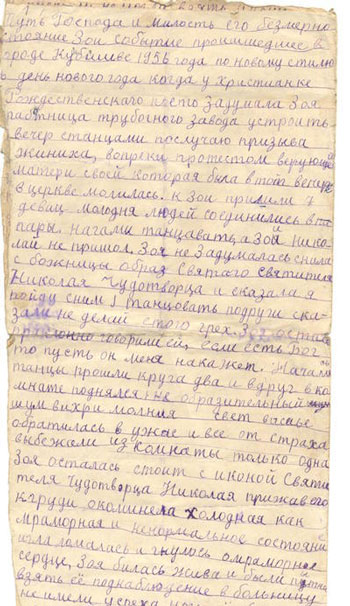 Путь Господа и милость его безмерно
стояние Зои событие происшедшее в
городе Куйбишве 1956 года по новому стилю
в день нового года когда у християнке
Рождественского пасто задумала Зоя
работница трубочного завода устроить
вечер станцами послучаю призыва
жиниха, вопреки протестом верующей
матери своей которая была в тот вечер
в церкве могилась. к Зои пришли 7
девиц молодня людей соединились в
пары. начали танцавать, а Зои Нико
лай не пришол. Зоя не Задумалась сняла
с божницы образ Святаго святителя
Николая Чудотворца и сказала я
пойду сним танцовать подруги ска
зали не делай етого грех. Зоя
говорили ей, если есть Бог
то пусть он меня накажет. Начали
танцы прошли круга два и вдруг в ко
мнате поднялся не образительный
шум вихри молния свет васье
обратилась в ужас и все от страха
выбежали из комнаты только одна
Зоя осталась стоит с иконой Святи
теля Чудотворца Николая прижав его
к груди окоминела холодная как
мраморная и ненормальное состояни
ломалась и гнулось омраморное
сердце, Зоя билась жива и были
взять её поднаблюдение в больницу
не имели успеха